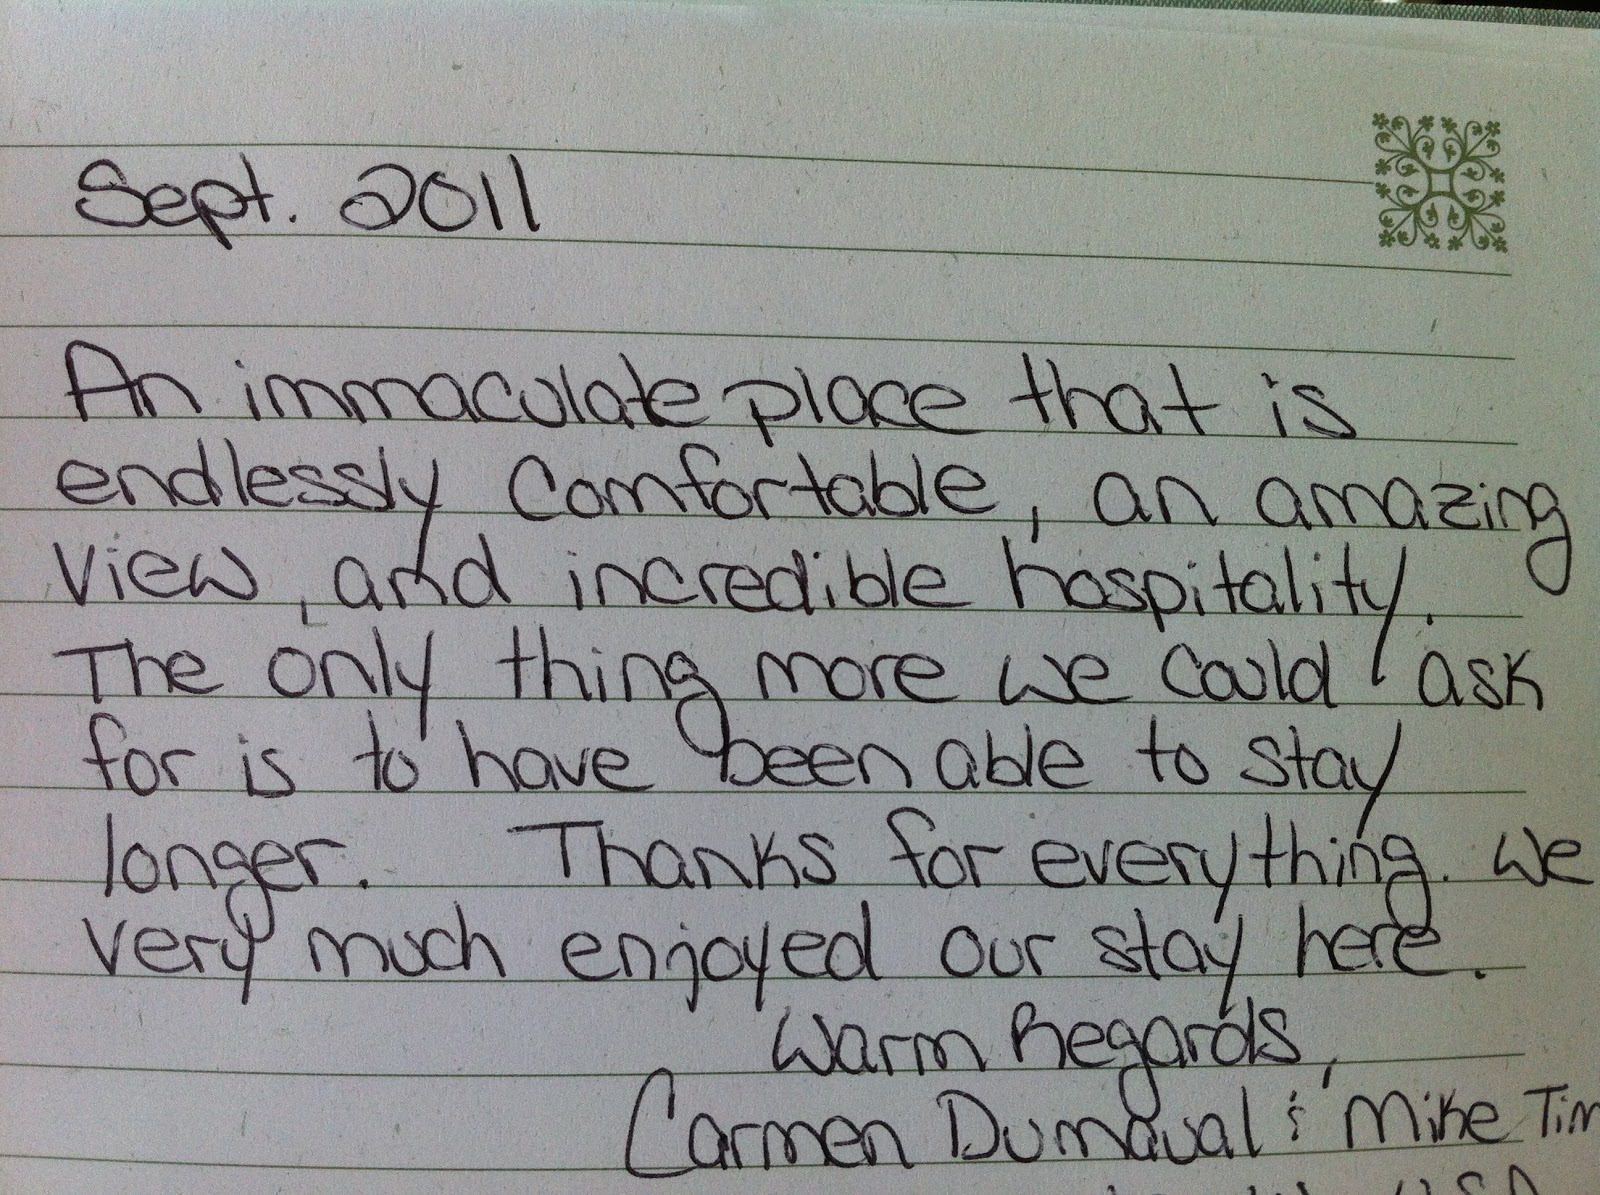 Sept. 2011
An immaculate place that is
endlessly comfortable, an amazing
view, and incredible hospitality.
The only thing more we could ask
for is to have been able to stay
longer. Thanks for everything. We
very much enjoyed our stay here.
Warm Regards,
Carmen Dumaual & Mike Tim
USA